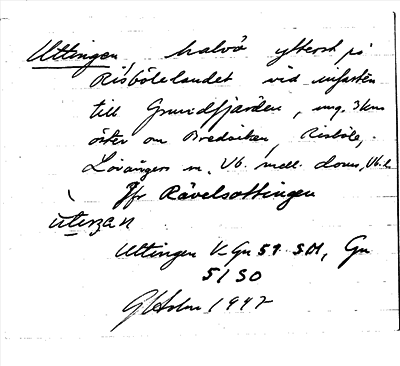 Uttingen, halvö ytterst på
Risbölelandet vid infarten
till Grundfjärden, ung. 3 km
öster om Bredviken, Risböle,
Lövångers sn, Vb. mell. doms, Vb. l.
Jfr Rävelsottingen
Uttingen V-Gu 59 SM, Gu
5150
G Holm 1947